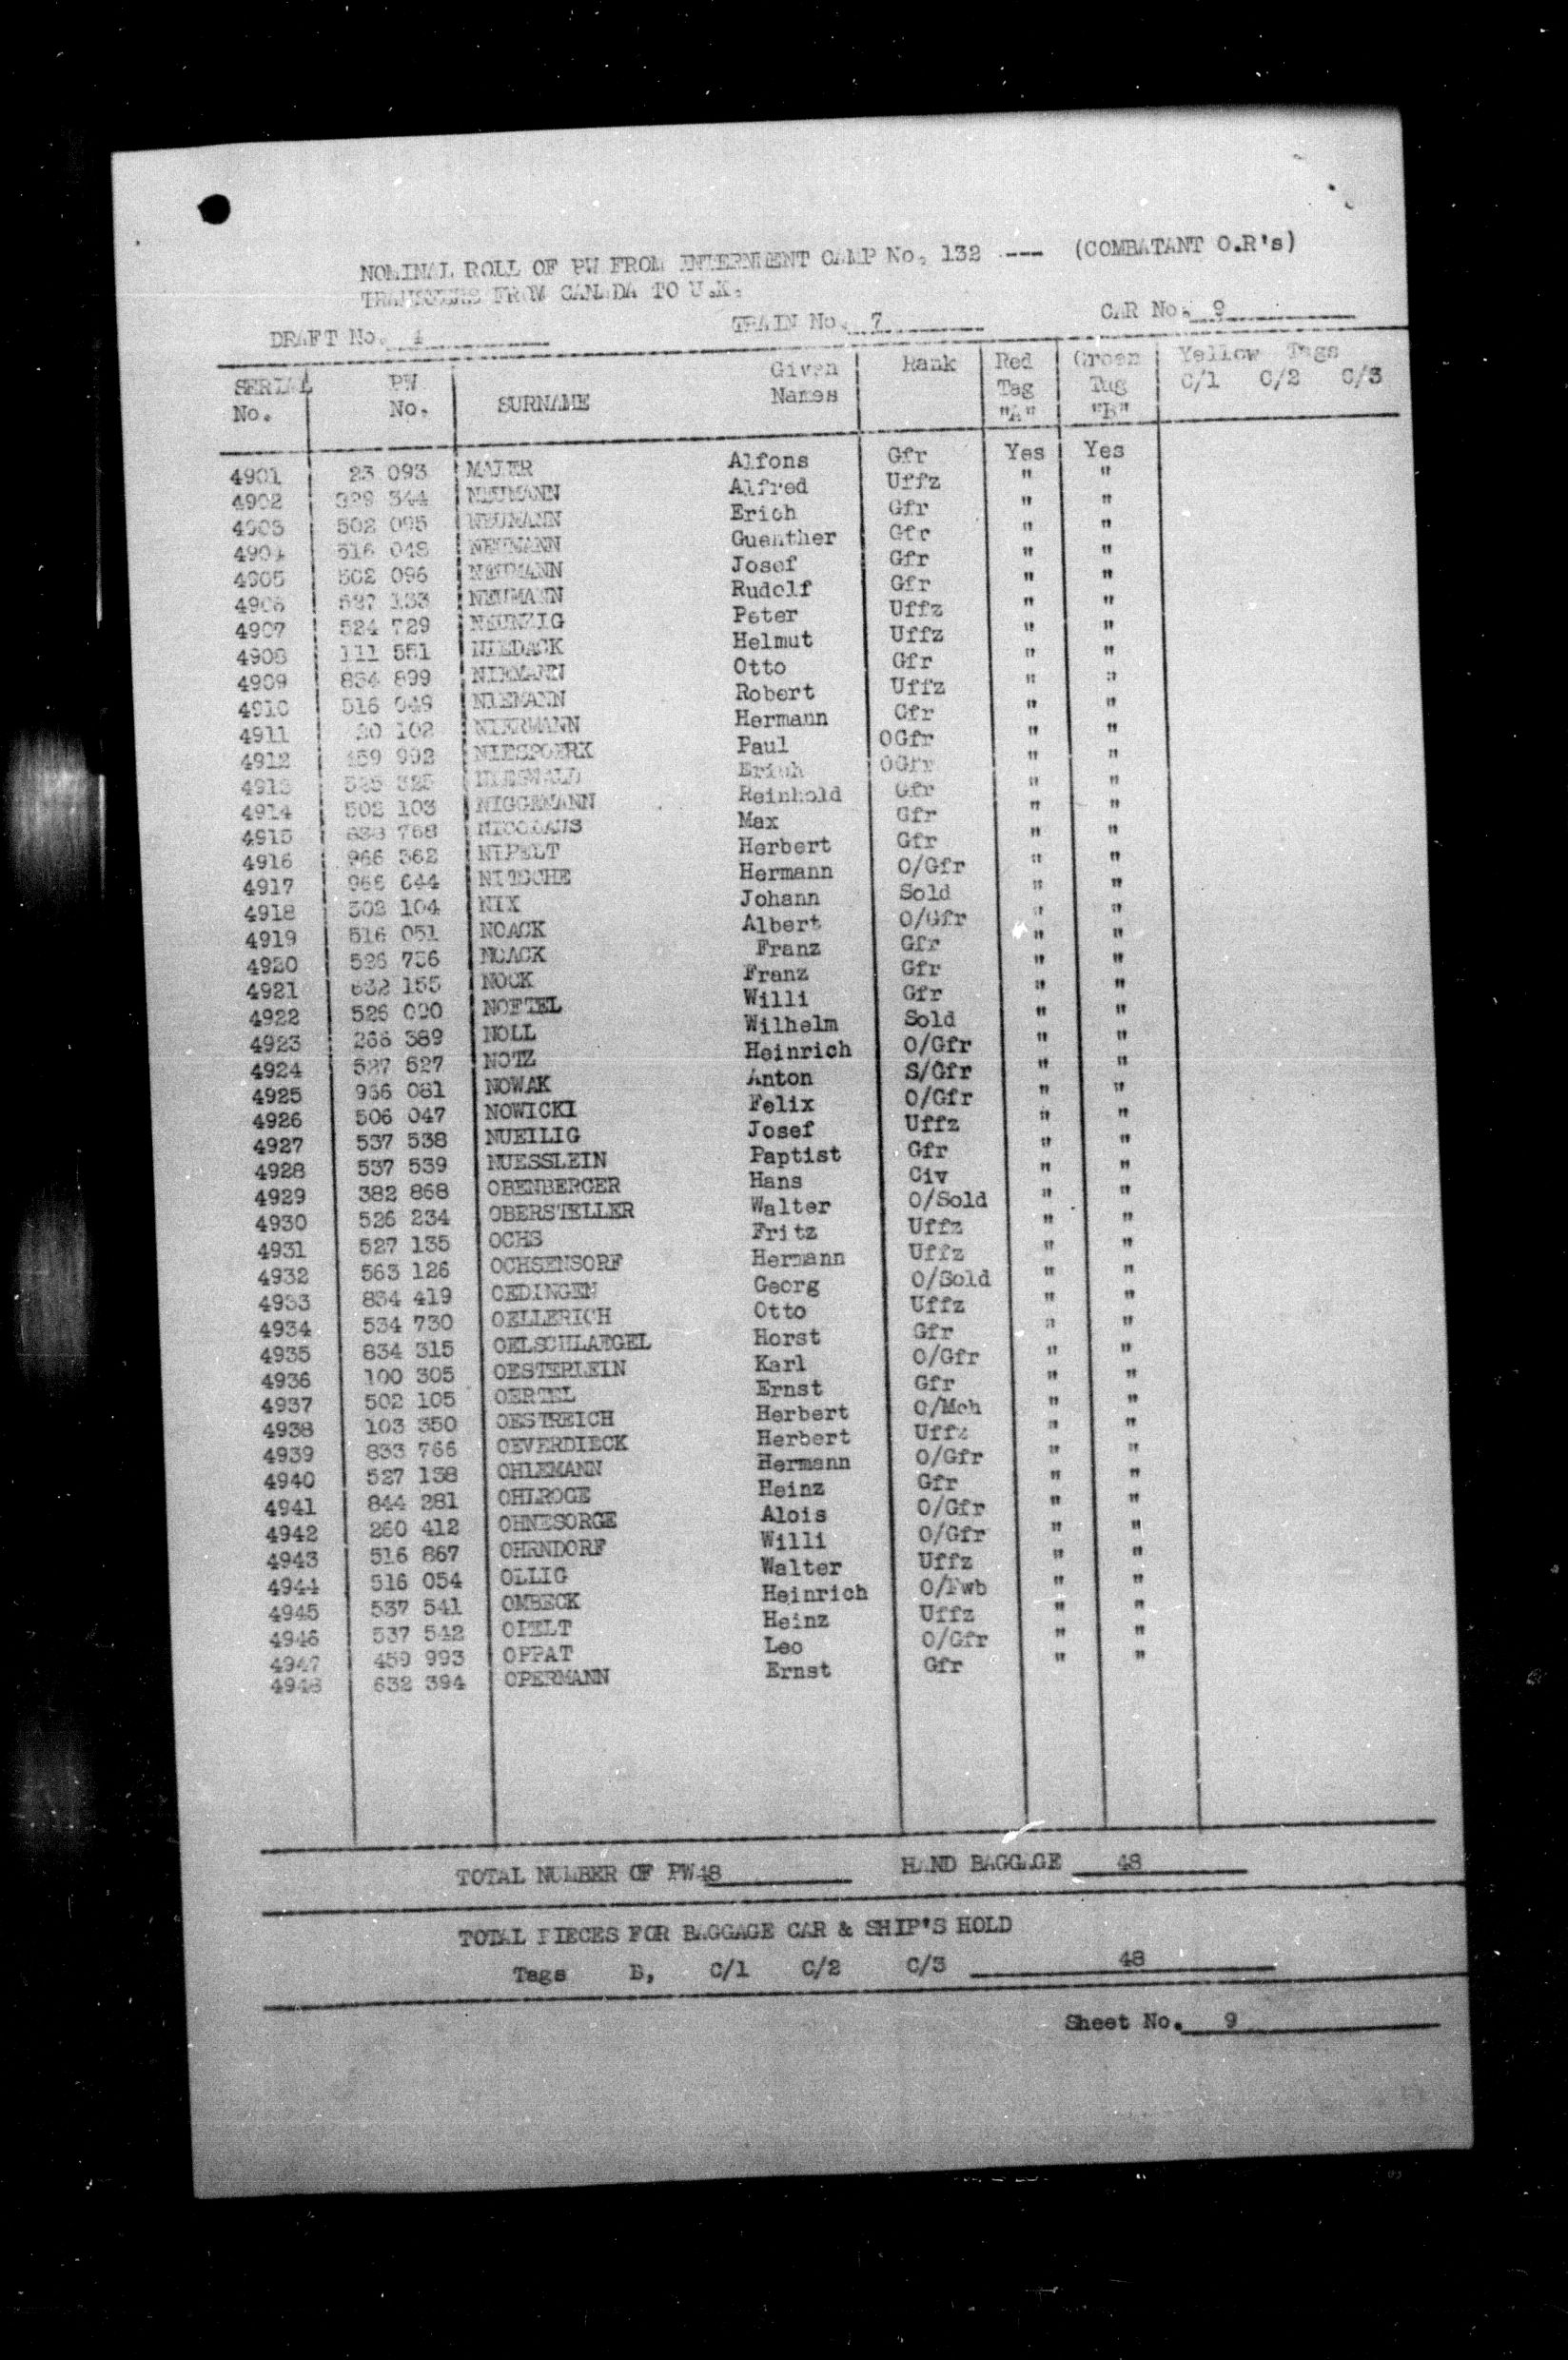 NOMINAL ROLL OF PW FROM INTERNMENT CAMP No. 132 --- (COMBATANT O.R's)
TRANSFERS FROM CANADA TO U.K.
DRAFT No. 4 TRAIN No. 7 CAR No. 9
SERIAL No. PW No. SURNAME Given Names Rank Red Tag "A" Green Tag "B" Yellow Tags C/1 C/2 C/3
4901 23 093 MAIER Alfons Gfr Yes Yes
4902 329 344 NEUMANN Alfred Uffz " "
4903 502 095 NEUMANN Erich Gfr " "
4904 516 048 NEUMANN Guenther Gfr " "
4905 502 096 NEUMANN Josef Gfr " "
4906 527 133 NEUMANN Rudolf Gfr " "
4907 524 729 NEUNZIG Peter Uffz " "
4908 111 551 NIEDACK Helmut Uffz " "
4909 834 899 NIEMANN Otto Gfr " "
4910 516 049 NIEMANN Robert Uffz " "
4911 30 102 NIERMANN Hermann Gfr " "
4912 459 992 NIESPOERK Paul OGfr " "
4913 525 325 Erich OGfr " "
4914 502 103 NIGGEMANN Reinhold Gfr " "
4915 833 768 NICOLAUS Max Gfr " "
4916 966 362 NIPELT Herbert Gfr " "
4917 966 644 NITSCHE Hermann O/Gfr " "
4918 502 104 NIX Johann Sold " "
4919 516 051 NOACK Albert O/Gfr " "
4920 526 736 NOACK Franz Gfr " "
4921 632 155 NOCK Franz Gfr " "
4922 526 090 NOETEL Willi Gfr " "
4923 266 389 NOLL Wilhelm Sold " "
4924 527 527 NOTZ Heinrich O/Gfr " "
4925 966 081 NOWAK Anton S/Gfr " "
4926 506 047 NOWICKI Felix O/Gfr " "
4927 537 538 NUEILIG Josef Uffz " "
4928 537 539 NUESSLEIN Paptist Gfr " "
4929 382 868 OBENBERGER Hans Civ " "
4930 526 234 OBERSTELLER Walter O/Sold " "
4931 527 135 OCHS Fritz Uffz " "
4932 563 126 OCHSENSORF Hermann Uffz " "
4933 834 419 OEDINGEN Georg O/Sold " "
4934 534 730 OELLERICH Otto Uffz " "
4935 834 315 OELSCHLAEGEL Horst Gfr " "
4936 100 305 OESTERLEIN Karl O/Gfr " "
4937 502 105 OERTEL Ernst Gfr " "
4938 103 350 OESTREICH Herbert O/Mch " "
4939 833 766 OEVERDIECK Herbert Uffz " "
4940 527 138 OHLEMANN Hermann O/Gfr " "
4941 844 281 OHLROGE Heinz Gfr " "
4942 260 412 OHNESORGE Alois O/Gfr " "
4943 516 867 OHRNDORF Willi O/Gfr " "
4944 516 054 OLLIG Walter Uffz " "
4945 537 541 OMBECK Heinrich O/Fwb " "
4946 537 542 OPELT Heinz Uffz " "
4947 459 993 OPPAT Leo O/Gfr " "
4948 632 394 OPERMANN Ernst Gfr " "
TOTAL NUMBER OF PW 48 HAND BAGGAGE 48
TOTAL PIECES FOR BAGGAGE CAR & SHIP'S HOLD
Tags B, C/1 C/2 C/3 48
Sheet No. 9